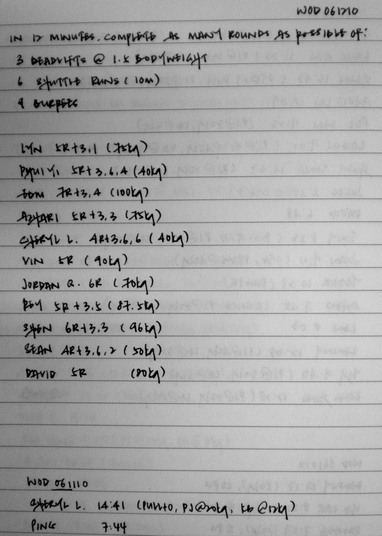 WOD 061210
IN 12 MINUTES, COMPLETE AS MANY ROUNDS AS POSSIBLE OF:
3 DEADLIFTS @ 1.5 BODYWEIGHT
6 SHUTTLE RUNS (10m)
9 BURPEES
LYN 5R+3,1 (75kg)
5R+3,6,4 (40kg)
TOM 7R+3,4 (100kg)
AZHARI 5R+3,3 (75kg)
CHERYL L. 4R+3,6,6 (40kg)
VIN 5R (90kg)
JORDAN Q. 6R (70kg)
ROY 5R+3,5 (87.5kg)
SHEN 6R+3,3 (96kg)
SEAN 4R+3,6,2 (50kg)
DAVID 5R (80kg)
WOD 061110
CHERYL L. 14:41 (PJ@20kg, KB@12kg)
PING 7:44